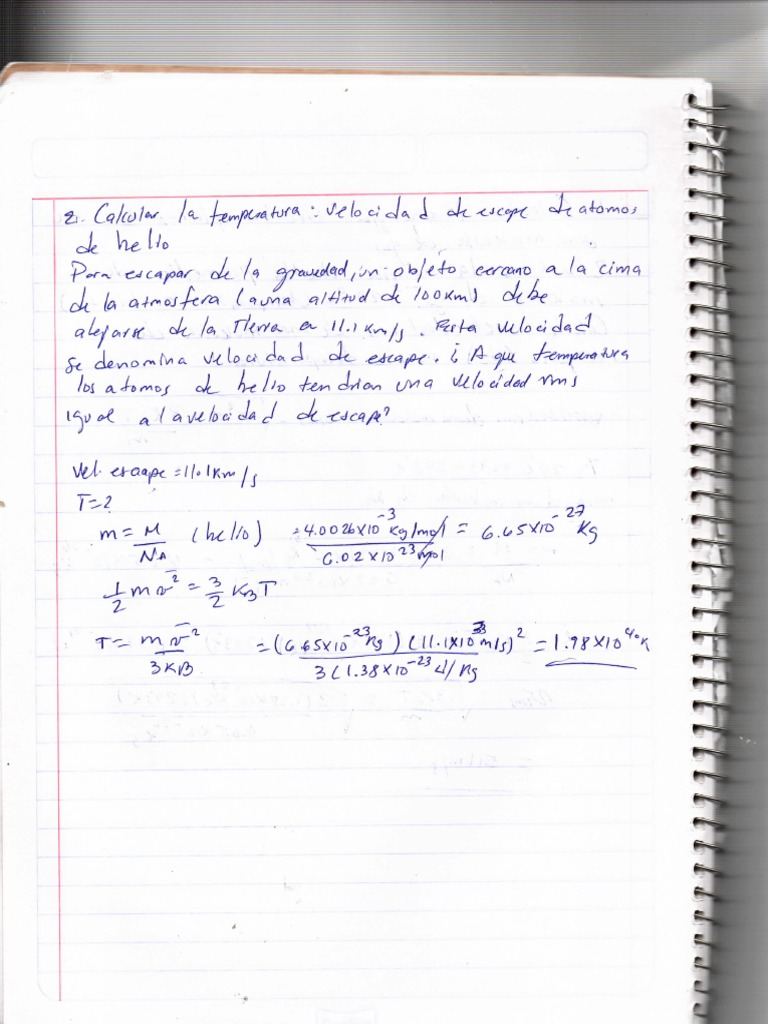 2. Calcular la temperatura: velocidad de escape de atomos
de helio
Para escapar de la gravedad, un objeto cercano a la cima
de la atmosfera (a una altitud de 100Km) debe
alejarse de la Tierra a 11.1 Km/s. Esta velocidad
se denomina velocidad de escape. ¿A que temperatura
los atomos de helio tendrian una velocidad rms
igual a la velocidad de escape?
Vel. escape = 11.1 Km/s
T=?
m = M/NA (helio) = 4.0026x10^-3 Kg/mol / 6.02x10^23 mol = 6.65x10^-27 Kg
1/2 m v̄^2 = 3/2 KB T
T = m v̄^2 / 3KB = (6.65x10^-23 Kg) (11.1x10^3 m/s)^2 / 3(1.38x10^-23 J/Kg = 1.98x10^4 °K